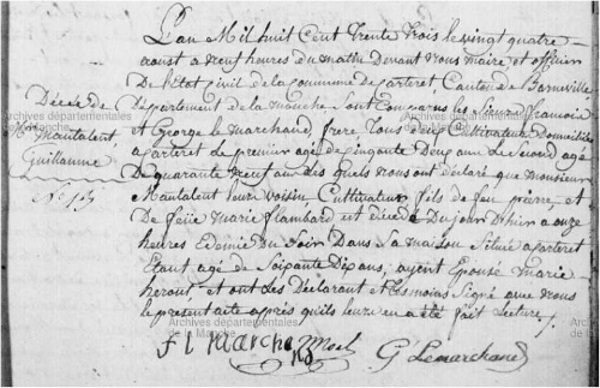 L'an Mil huit Cent Trente Trois le vingt quatre
aoust a neuf heures du matin Devant nous maire et officier
De l'Etat Civil de la commune de Carteret Canton de Barneville
Departement de la manche Sont Comparus les Sieurs francois
et George le marchand, frere Tous deux Cultivateurs Domiciliés
a Carteret le premier agé de Cinquante Deux ans le Second agé
de quarante neuf ans des quels nous ont déclaré que monsieur
Mautalent leur voisin Cultivateur fils de feu pierre, et
De feüe Marie flambard est décédé Du jour D'hier a onze
heures Edemie Du Soir Dans Sa maison Située a Carteret
Etant agé de Soixante Dix ans, ayant Epousé marie
herout, et ont Les Déclarant et Temoins Signé avec nous
le present acte après qu'ils leur en a été fait Lecture
Décès de
Mr Mautalent
Guillaume
No 13
F l Marchand
G Lemarchand
Archives départementales
de la Manche
Archives départementales
de la Manche
Archives départementales
de la Manche